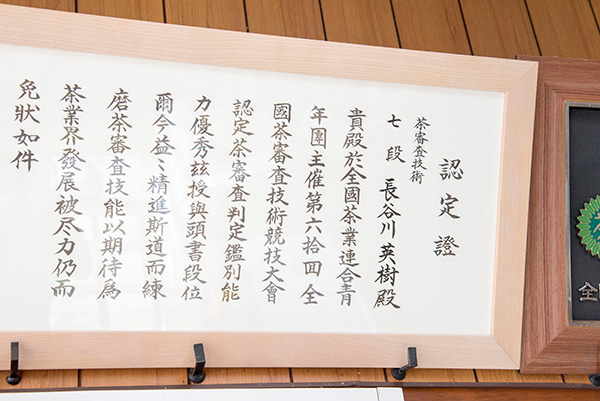 認定證
茶審査技術
七段 長谷川英樹殿
貴殿於全國茶業連合青
年團主催第六拾回全
國茶審査技術競技大會
認定茶審査判定鑑別能
力優秀玆授與頭書段位
爾今益〻精進斯道而練
磨茶審査技能以期待爲
茶業界發展被尽力仍而
免狀如件
全